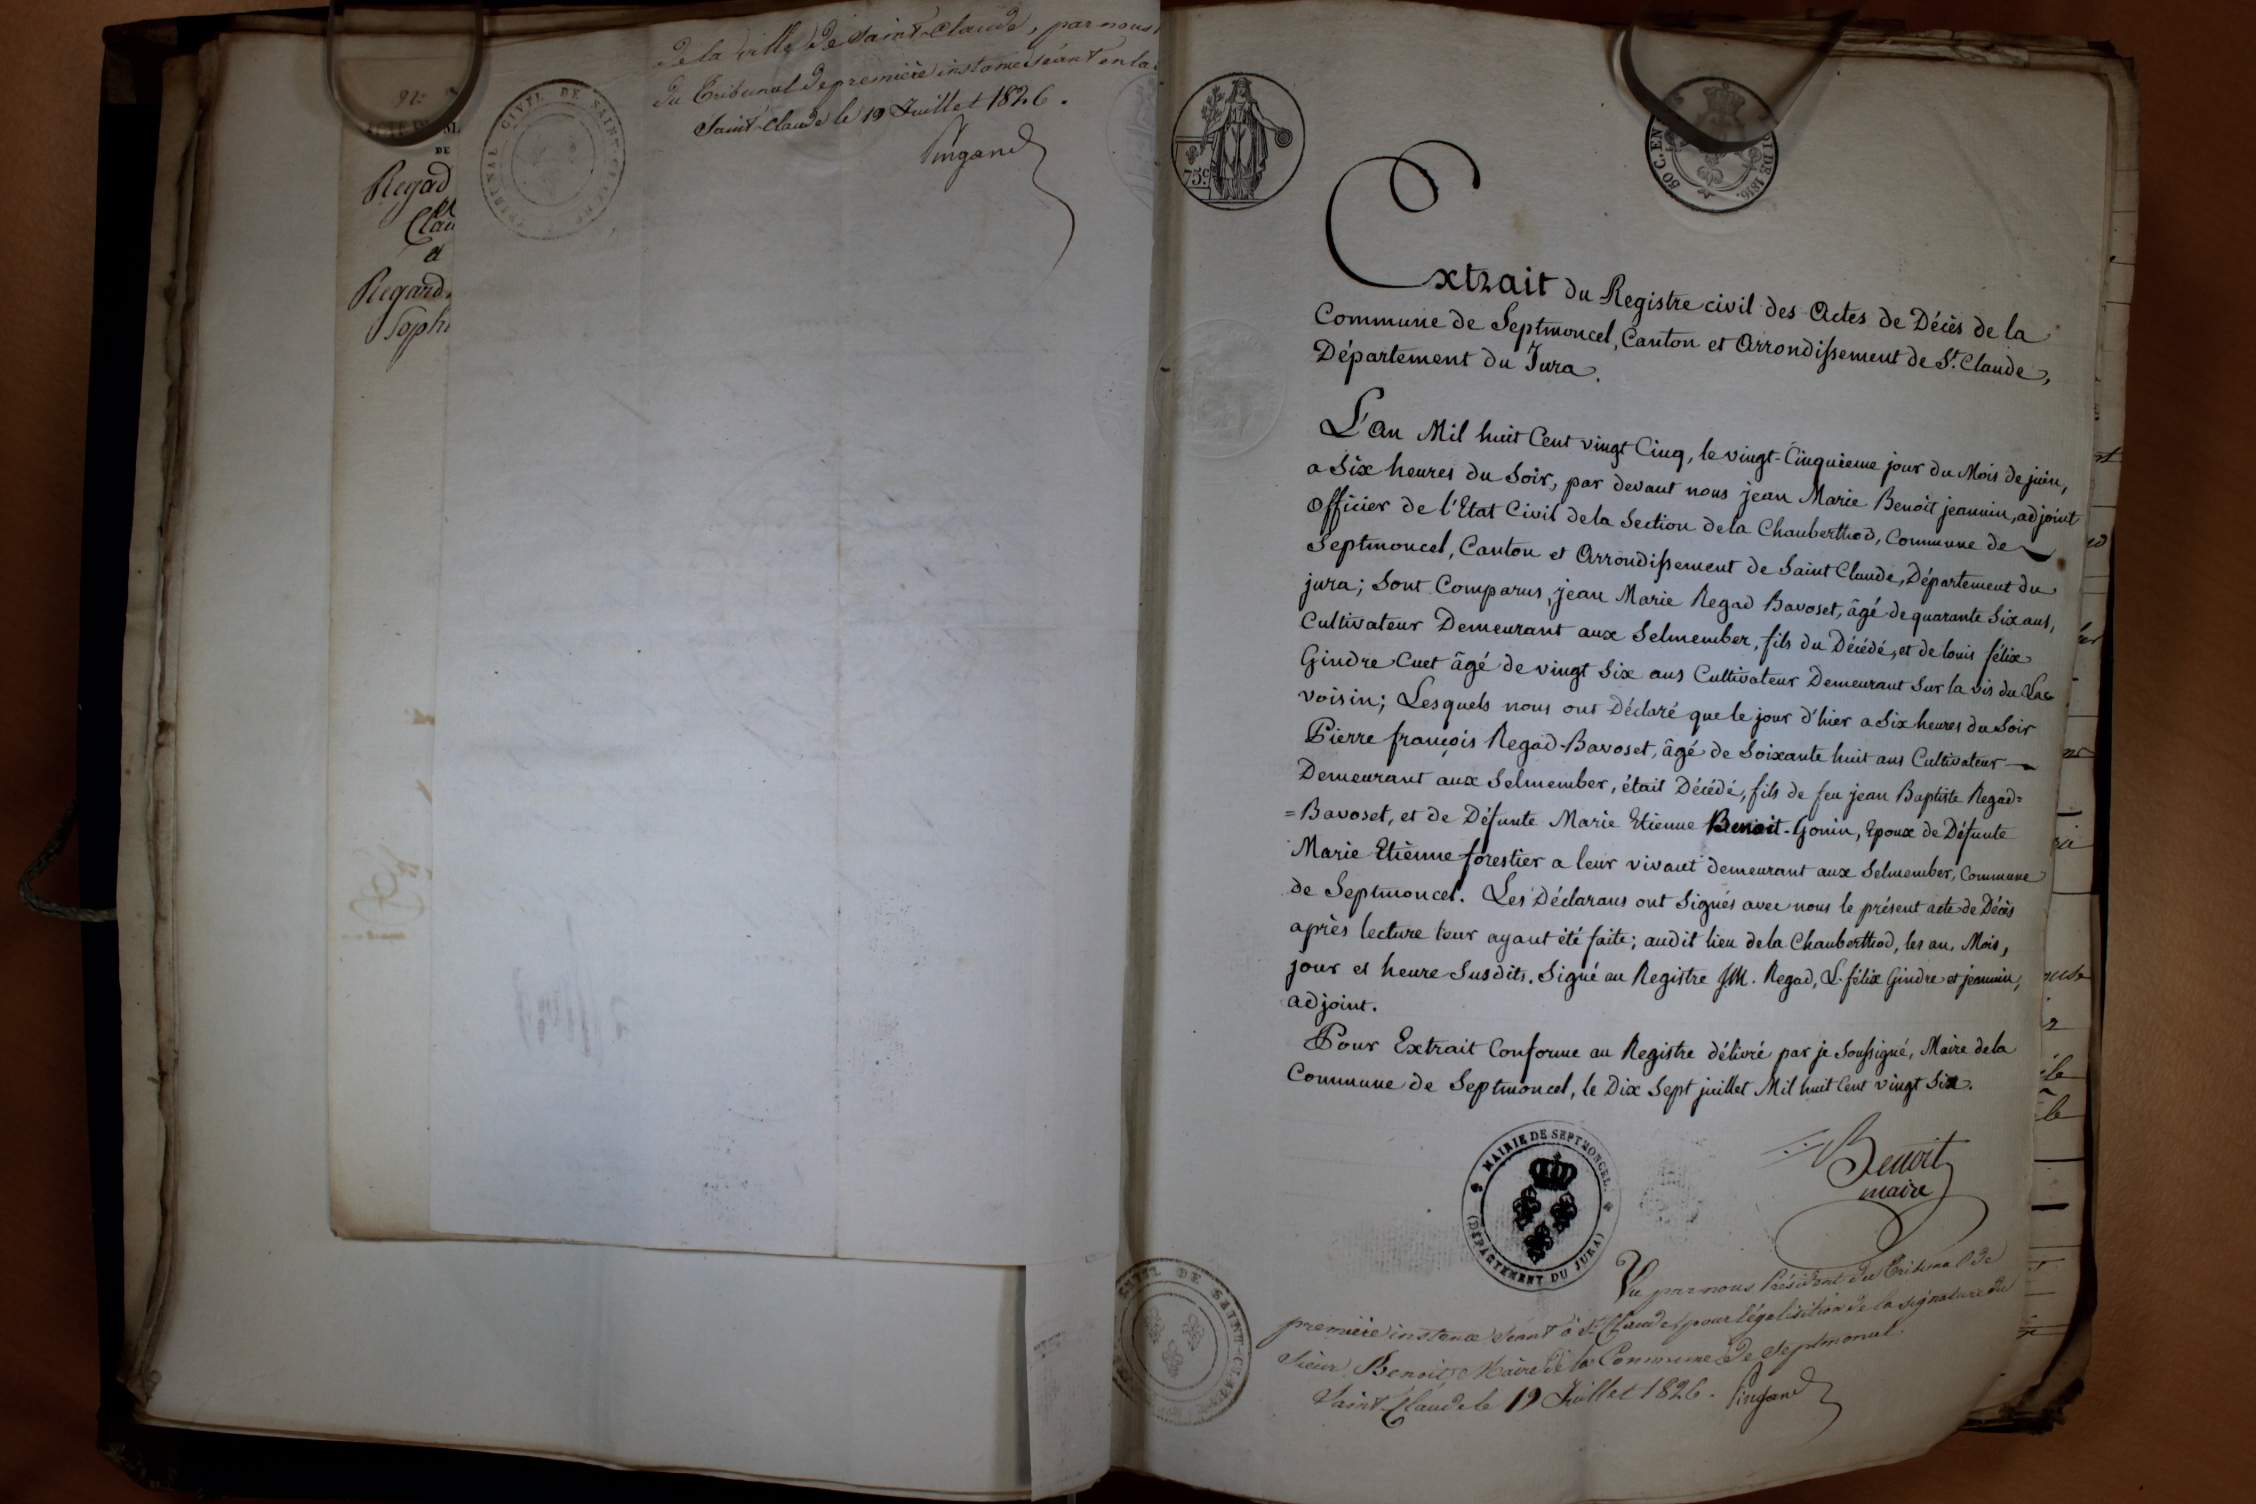 de la ville de Saint-Claude, par nous
du Tribunal de première instance séant en la
Saint-Claude le 19 Juillet 1826.
Pingand
TRIBUNAL CIVIL DE SAINT-CLAUDE
DE
Regad
Clau
et
Regard
Sophi
75 c.
50 C. EN
DE 1816.
Extrait du Registre civil des Actes de Décès de la
Commune de Septmoncel, Canton et Arrondissement de St. Claude,
Département du Jura.
L'an Mil huit Cent vingt Cinq, le vingt-Cinquieme jour du Mois de juin,
a Six heures du Soir, par devant nous jean Marie Benoit jeannin, adjoint
Officier de l'Etat Civil de la Section de la Chauberthod, Commune de
Septmoncel, Canton et Arrondissement de Saint Claude, Département du
jura; Sont Comparus, jean Marie Regad Bavoset, âgé de quarante Six ans,
Cultivateur Demeurant aux Selmember, fils du Décédé, et de louis félix
Gindre Cuet âgé de vingt Six ans Cultivateur Demeurant Sur la vis du Lac
voisin; Lesquels nous ont Déclaré que le jour d'hier a Six heures du Soir
Pierre françois Regad-Bavoset, âgé de Soixante huit ans Cultivateur
Demeurant aux Selmember, était Décédé, fils de feu jean Baptiste Regad=
=Bavoset, et de Défunte Marie Etienne Benoit-Gonin, Epoux de Défunte
Marie Etiènne forestier a leur vivant demeurant aux Selmember, Commune
de Septmoncel. Les Déclarans ont Signés avec nous le présent acte de Décès
après lecture leur ayant été faite; audit lieu de la Chauberthod, les an, Mois,
jour et heure Susdits. Signé au Registre J.M. Regad, L. félix Gindre et jeannin,
adjoint.
Pour Extrait Conforme au Registre délivré par je Soussigné, Maire de la
Commune de Septmoncel, le Dix Sept juillet Mil huit Cent vingt Six.
Benoit
maire
MAIRIE DE SEPTMONCEL
(DÉPARTEMENT DU JURA)
Vu par nous Président du Tribunal de
première instance séant à St. Claude pour légalisation de la signature du
Sieur Benoit, Maire de la Commune de Septmoncel.
Saint-Claude le 19 Juillet 1826. Pingand
CIVIL DE SAINT-CLAUDE